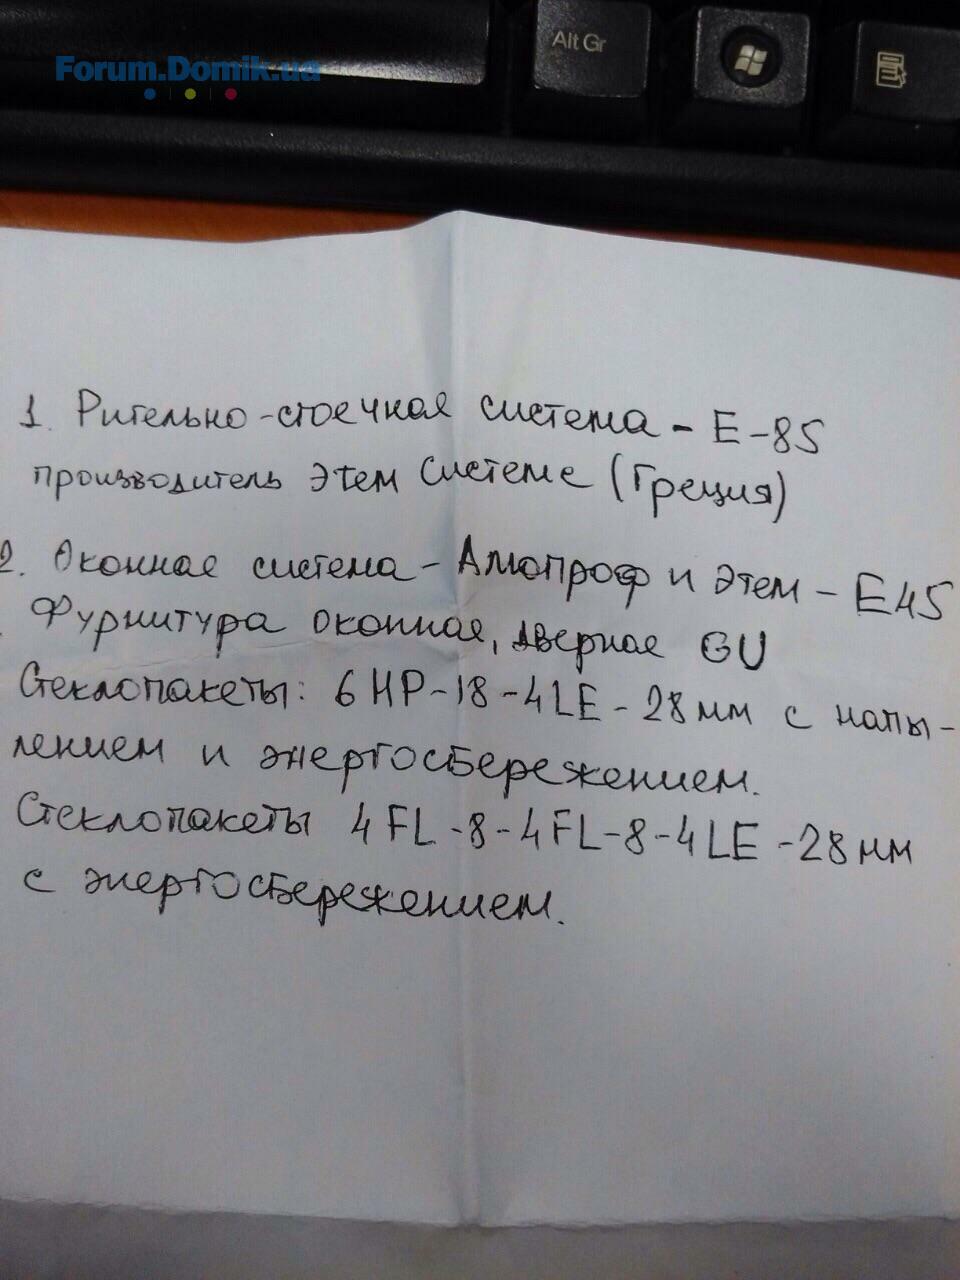 Alt Gr
Forum.Domik.ua
1. Ригельно-стоечная система - Е-85
производитель Этем Системс (Греция)
2. Оконная система - Алюпроф и Этем - Е45
Фурнитура оконная, дверная GU
Стеклопакеты: 6HP-18-4LE-28мм с напы-
лением и энергосбережением.
Стеклопакеты 4FL-8-4FL-8-4LE-28мм
с энергосбережением.